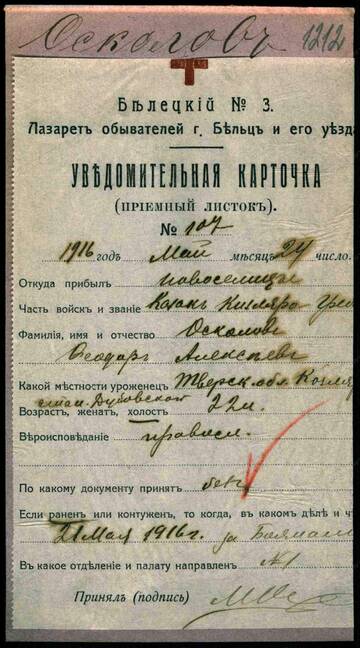 Осколовъ 1212
Бѣлецкій № 3.
Лазаретъ обывателей г. Бѣльцъ и его уѣзд
УВѢДОМИТЕЛЬНАЯ КАРТОЧКА
(ПРІЕМНЫЙ ЛИСТОКЪ).
№ 107
1916 годъ Май мѣсяцъ 24 число.
Откуда прибылъ Новоселицы
Часть войскъ и званіе Казакъ Кизляро-Гре
Фамилія, имя и отчество Осколовъ
Ѳеодоръ Алексѣевъ
Какой мѣстности уроженецъ Терск. обл. Кизля
стан. Дубовской
Возрастъ, женатъ, холостъ 22 л.
Вѣроисповѣданіе правосл.
По какому документу принятъ безъ
Если раненъ или контуженъ, то когда, въ какомъ дѣлѣ и ч
21 Мая 1916 г. за
Въ какое отдѣленіе и палату направленъ №1
Принялъ (подпись)